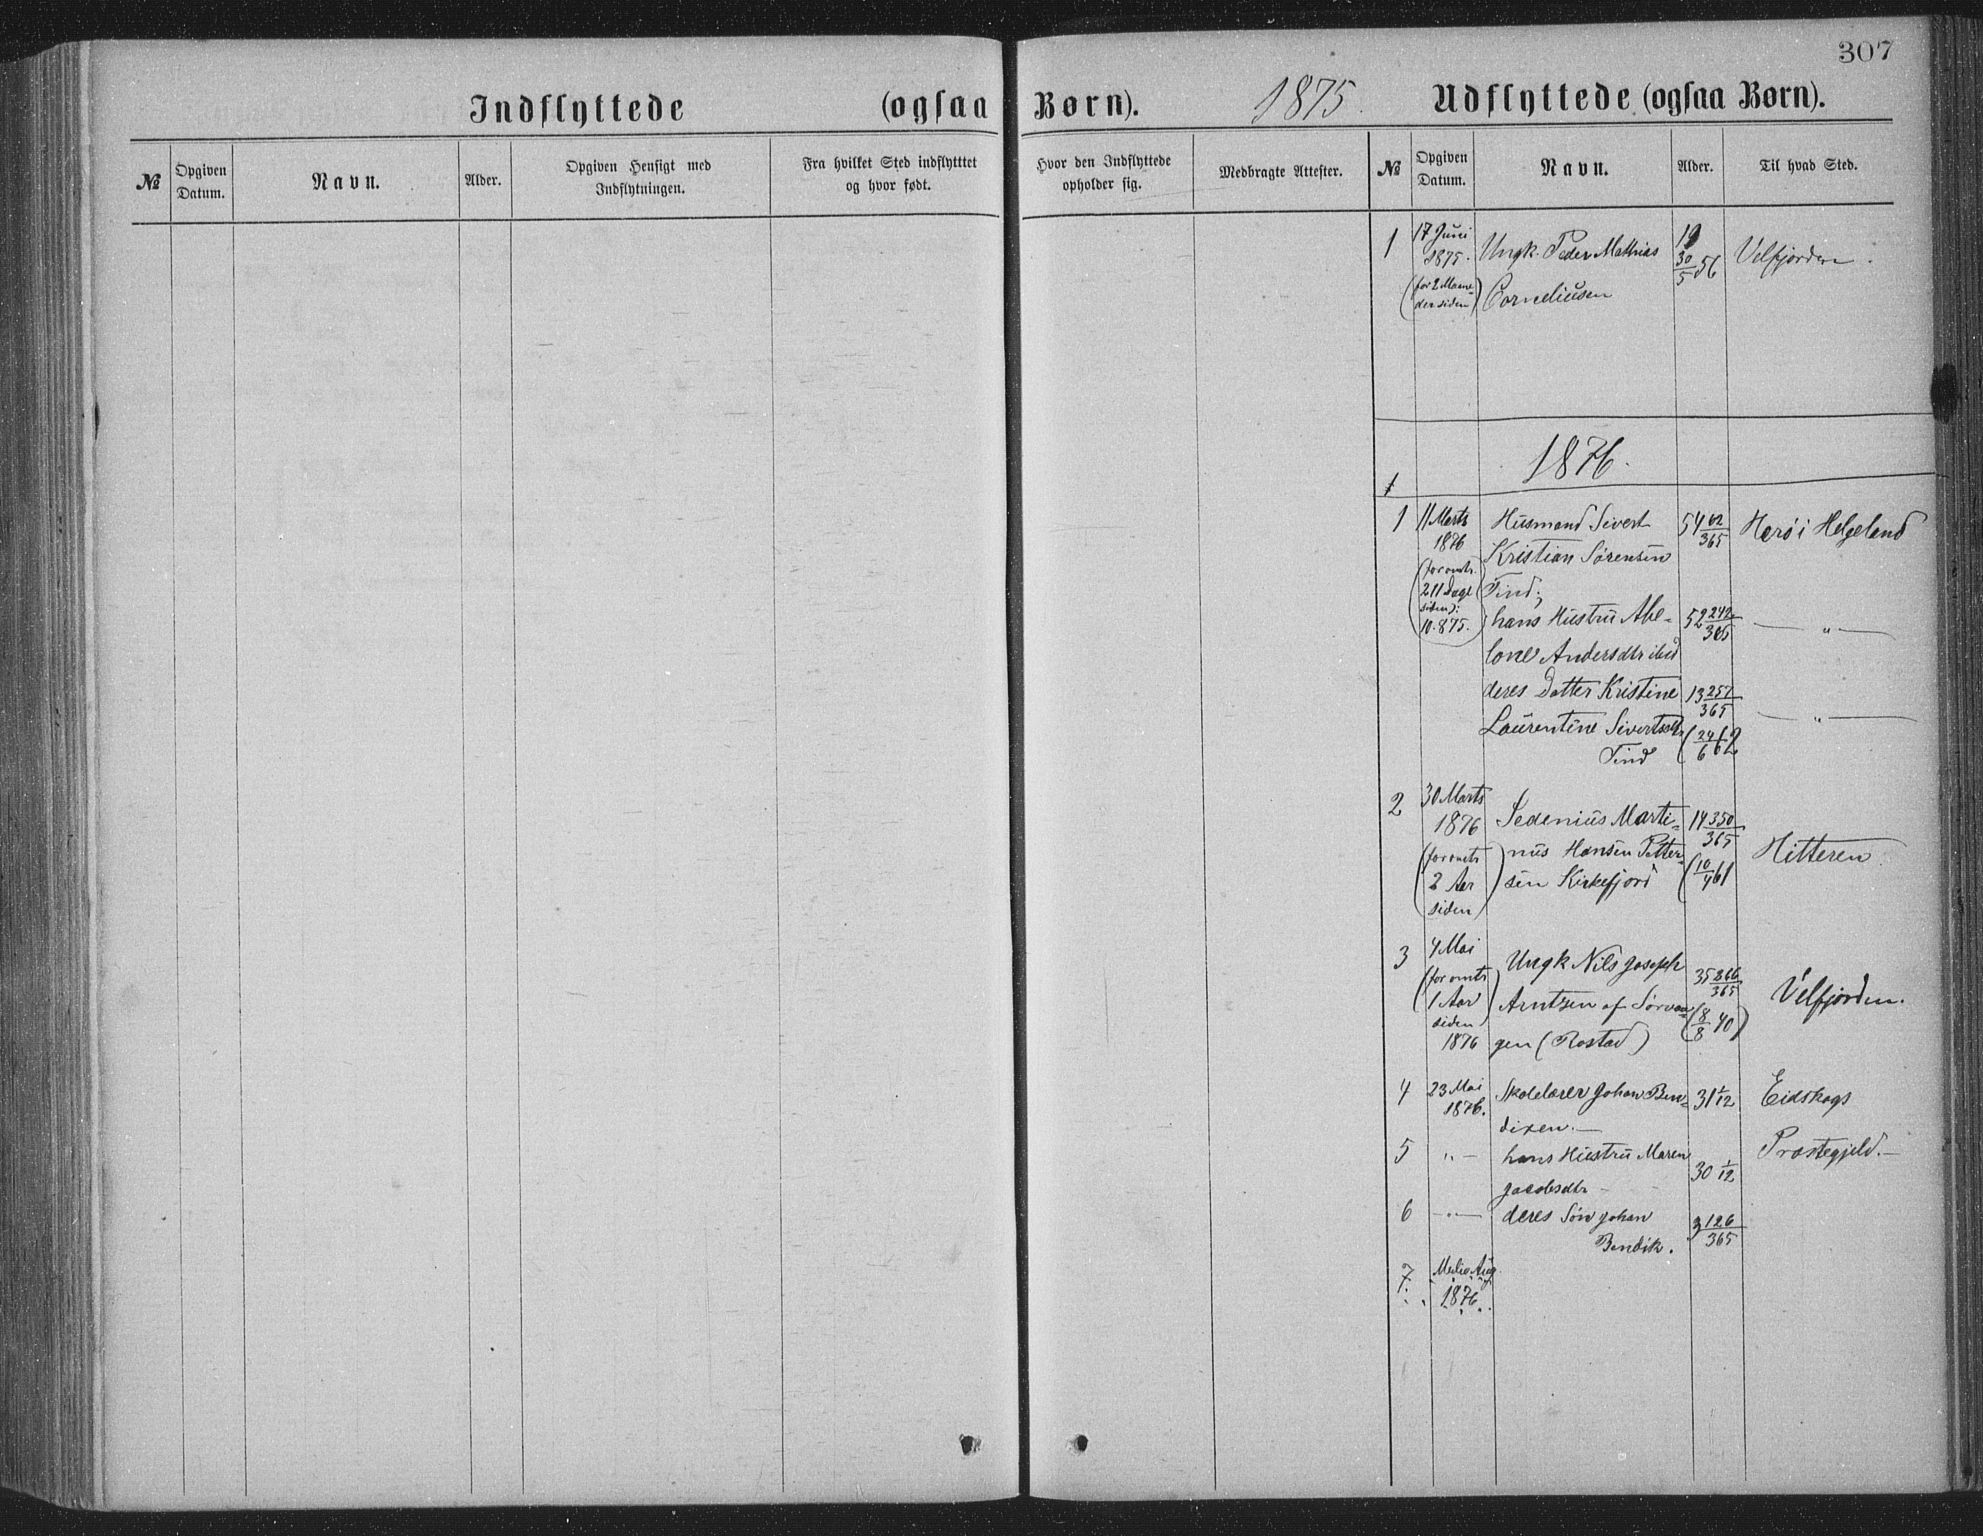 307
Indflyttede (ogsaa Børn). 1875. Udflyttede (ogsaa Børn).
№ Opgiven Datum. Navn. Alder. Opgiven Hensigt med Indflytningen. Fra hvilket Sted indflytttet og hvor født. Hvor den Indflyttede opholder sig. Medbragte Attester. № Opgiven Datum. Navn. Alder. Til hvad Sted.
1 17 Juni Ungk. Peder Mathias 19 Velfjorden.
1875. 30/5 56
(for 2 Maane- Corneliusen
der siden)
1876.
1
1 11 Marts Husmand Sivert 54 62/365 Herø i Helgeland
1876 Kristian Sørensen
(for omtr. Tind;
211 Dage
siden): hans Hustru Abe- 52 242/365 — " —
10-875.) lone Andersdtr ibid
deres Datter Kristine 13 257/365 — " —
Laurentine Sivertsdtr (24/6 62)
Tind
2 30 Marts Sedenius Marti- 14 350/365 Hitteren.
1876
(for omtr nus Hansen Petter- (10/4 61
2 Aar sen Kirkefjord
siden)
3 4 Mai Ungk Nils Joseph 35 266/365 Velfjorden.
(for omtr
1 Aar Arntzen af Sørvaa- (8/8 40)
siden)
1876 gen (Rostad)
4 23 Mai Skolelærer Johan Ben- 31 1/12 Eidskogs
1876. dixen.—
5 " — hans Hustru Maren 30 1/12 Præstegjeld.—
Jacobsdtr —
6 — " — deres Søn Johan 3 126/365
Bendik.
7. Medio Aug.
1876.